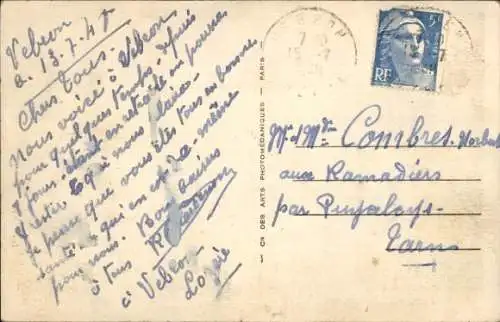 Vebron
a. 13.7.47
Chers Tous.
Nous voici à Vebron
pour quelques temps, depuis
étant en retraite on pourra
rester où qui nous plaira.
Je pense que vous êtes tous en bonne
santé, qui en est de même
pour nous. Bons baisers
à tous
à Vebron
Lozère
Cie DES ARTS PHOTOMÉCANIQUES - PARIS
5F
RF
Mr et Mme Combres Norbert
aux Ramadiers
par Puycelsi
Tarn